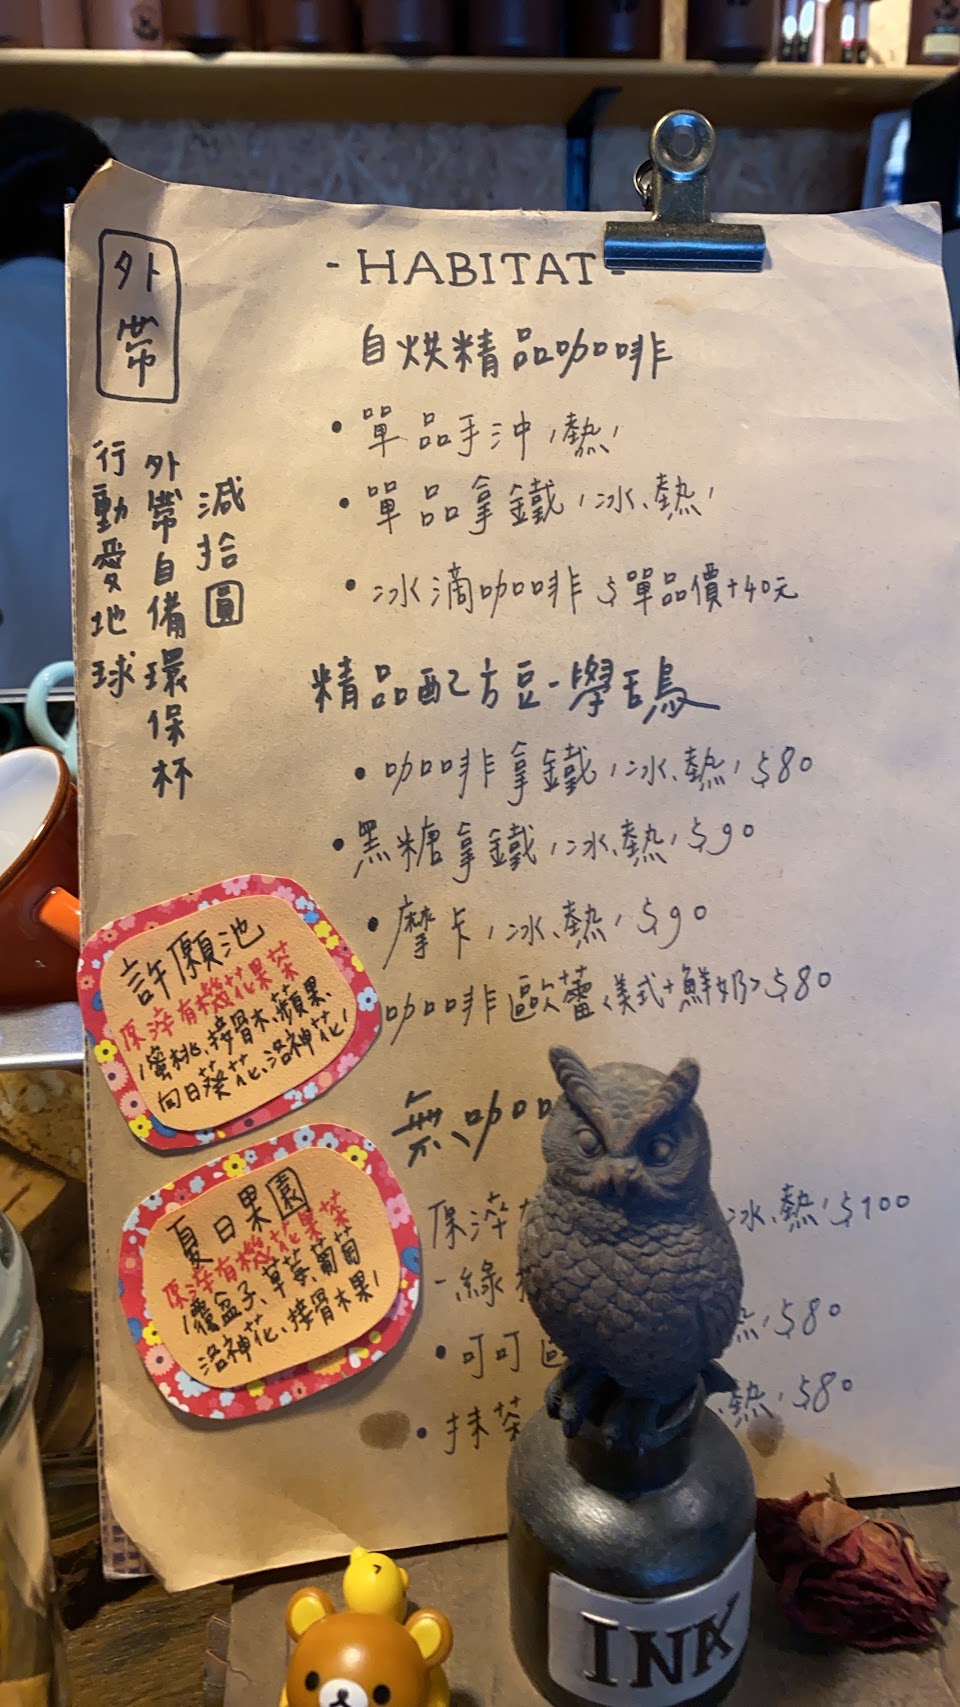 外帶
行動愛地球
外帶自備環保杯
減拾圓
- HABITAT -
自烘精品咖啡
• 單品手沖(熱)
• 單品拿鐵(冰、熱)
• 冰滴咖啡 $單品價+40元
精品配方豆-學舌鳥
• 咖啡拿鐵(冰、熱) $80
• 黑糖拿鐵(冰、熱) $90
• 摩卡(冰、熱) $90
咖啡歐蕾<美式+鮮奶> $80
無咖
原淬 冰、熱) $100
-綠
• 可可 熱) $80
• 抹茶 、熱) $80
許願池
原淬有機花果茶
(蜜桃、接骨木、蘋果、
向日葵花、洛神花)
夏日果園
原淬有機花果茶
(覆盆子、草莓、葡萄
洛神花、接骨木果)
INK